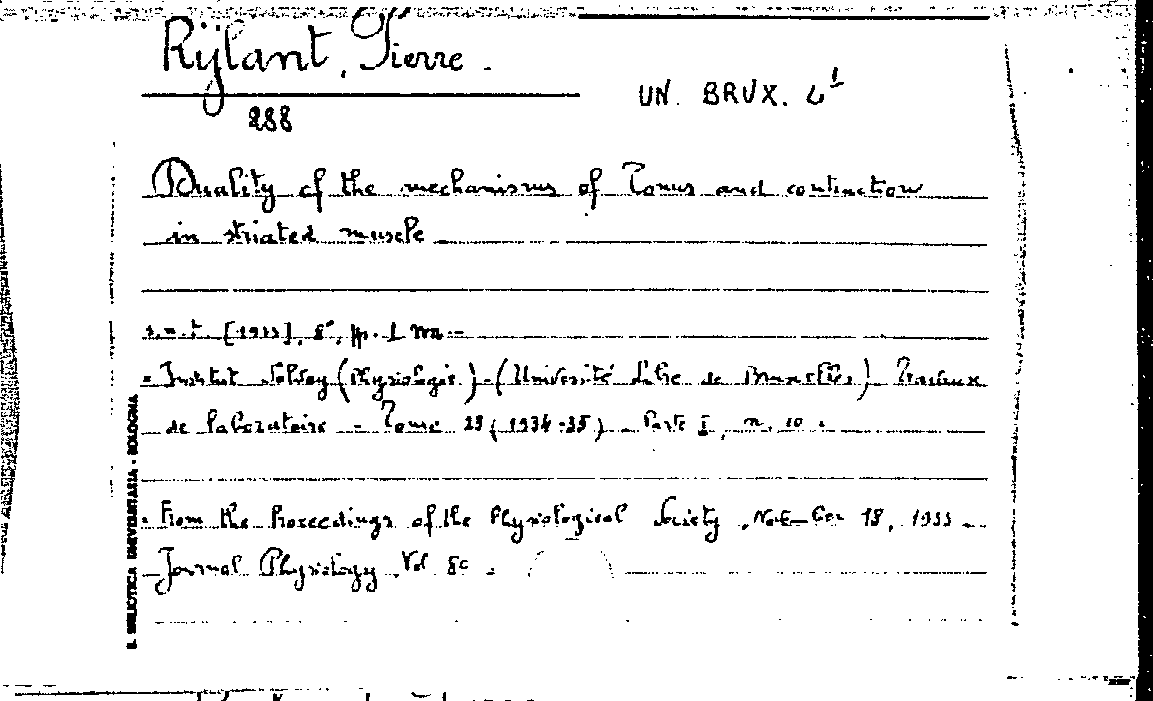 Rijlant, Pierre.
UN. BRUX. 4¹
288
Duality of the mechanisms of Tonus and contraction
in striated muscle
s.n.t. [1933], 8°, pp.
- Institut Solvay (Physiologie) - (Université Libre de Bruxelles) Travaux
de laboratoire - Tome 28 (1934-35) - Parte I, n. 10.
- From the Proceedings of the Physiological Society, November 18, 1933 -
Journal Physiology, Vol. 80.
B. BIBLIOTECA UNIVERSITARIA - BOLOGNA